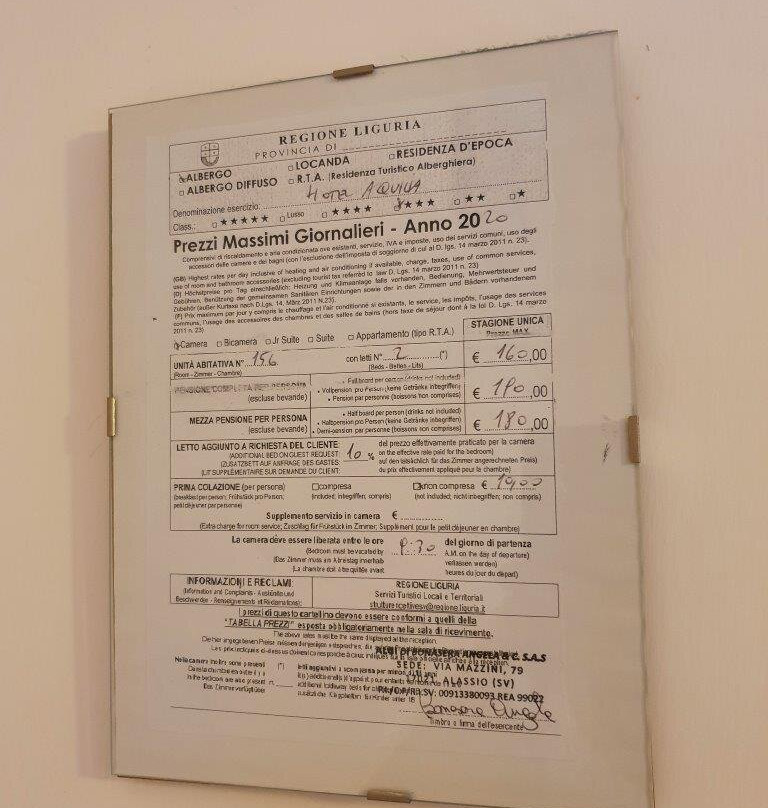 REGIONE LIGURIA
PROVINCIA DI
ALBERGO □ LOCANDA □ RESIDENZA D'EPOCA
□ ALBERGO DIFFUSO □ R.T.A. (Residenza Turistico Alberghiera)
Denominazione esercizio: HOTEL AQUILA
Class.: □ ★★★★★ □ Lusso □ ★★★★ ★★★ □ ★★ □ ★
Prezzi Massimi Giornalieri - Anno 2020
Comprensivi di riscaldamento e aria condizionata ove esistenti, servizio, IVA e imposte, uso dei servizi comuni, uso degli
accessori delle camere e dei bagni (con l'esclusione dell'imposta di soggiorno di cui al D. Lgs. 14 marzo 2011 n. 23).
(GB) Highest rates per day inclusive of heating and air conditioning if available, charge, taxes, use of common services,
use of room and bathroom accessories (excluding tourist tax referred to law D. Lgs. 14 marzo 2011 n. 23)
(D) Höchstpreise pro Tag einschließlich: Heizung und Klimaanlage falls vorhanden, Bedienung, Mehrwertsteuer und
Gebühren, Benützung der gemeinsamen Sanitären Einrichtungen sowie der in den Zimmern und Bädern vorhandenem
Zubehör (außer Kurtaxe nach D.Lgs. 14. März 2011 N.23).
(F) Prix maximum par jour y compris le chauffage et l'air conditionné si existants, le service, les impôts, l'usage des services
communs, l'usage des accessoires des chambres et des salles de bains (hors taxe de séjour dont à la loi D. Lgs. 14 marzo
2011 n. 23)
Camera □ Bicamera □ Jr Suite □ Suite □ Appartamento (tipo R.T.A.)
STAGIONE UNICA
Prezzo MAX
UNITÀ ABITATIVA N° 156 con letti N° 2 (*) € 160,00
(Room - Zimmer - Chambre) (Beds - Betten - Lits)
PENSIONE COMPLETA PER PERSONA
(escluse bevande)
• Full board per person (drinks not included)
• Vollpension pro Person (keine Getränke inbegriffen)
• Pension par personne (boissons non comprises)
€ 190,00
MEZZA PENSIONE PER PERSONA
(escluse bevande)
• Half board per person (drinks not included)
• Halbpension pro Person (keine Getränke inbegriffen)
• Demi-pension par personne (boissons non comprises)
€ 180,00
LETTO AGGIUNTO A RICHIESTA DEL CLIENTE:
(ADDITIONAL BED ON GUEST REQUEST:
(ZUSATZBETT AUF ANFRAGE DES GASTES:
(LIT SUPPLÉMENTAIRE SUR DEMANDE DU CLIENT:
10 %
del prezzo effettivamente praticato per la camera
on the effective rate paid for the bedroom)
auf den tatsächlich für das Zimmer angerechneten Preis)
du prix effectivement appliqué pour la chambre)
PRIMA COLAZIONE (per persona) □ compresa non compresa €
(breakfast per person; Frühstück pro Person; (included; inbegriffen; compris) (not included; nicht inbegriffen; non compris)
petit déjeuner par personne)
Supplemento servizio in camera €
(Extra charge for room service; Zuschlag für Frühstück im Zimmer; Supplement pour le petit déjeuner en chambre)
La camera deve essere liberata entro le ore del giorno di partenza
(Bedroom must be vacated by A.M. on the day of departure)
(Das Zimmer muss am Abreisetag innerhalb verlassen werden)
(La chambre doit être quittée avant heures du jour du départ)
INFORMAZIONI E RECLAMI:
(Information and Complaints - Auskünfte und
Beschwerden - Renseignements et Réclamations):
REGIONE LIGURIA
Servizi Turistici Locali e Territoriali
strutturericettivesv@regione.liguria.it
I prezzi di questo cartellino devono essere conformi a quelli della
"TABELLA PREZZI" esposta obbligatoriamente nella sala di ricevimento.
The above rates must be the same displayed at the reception.
ALBI DI BONASERA ANGELA & C. S.A.S
SEDE: VIA MAZZINI, 79
17021 ALASSIO (SV)
00913380093 REA
Bonasera Angela
timbro e firma dell'esercente